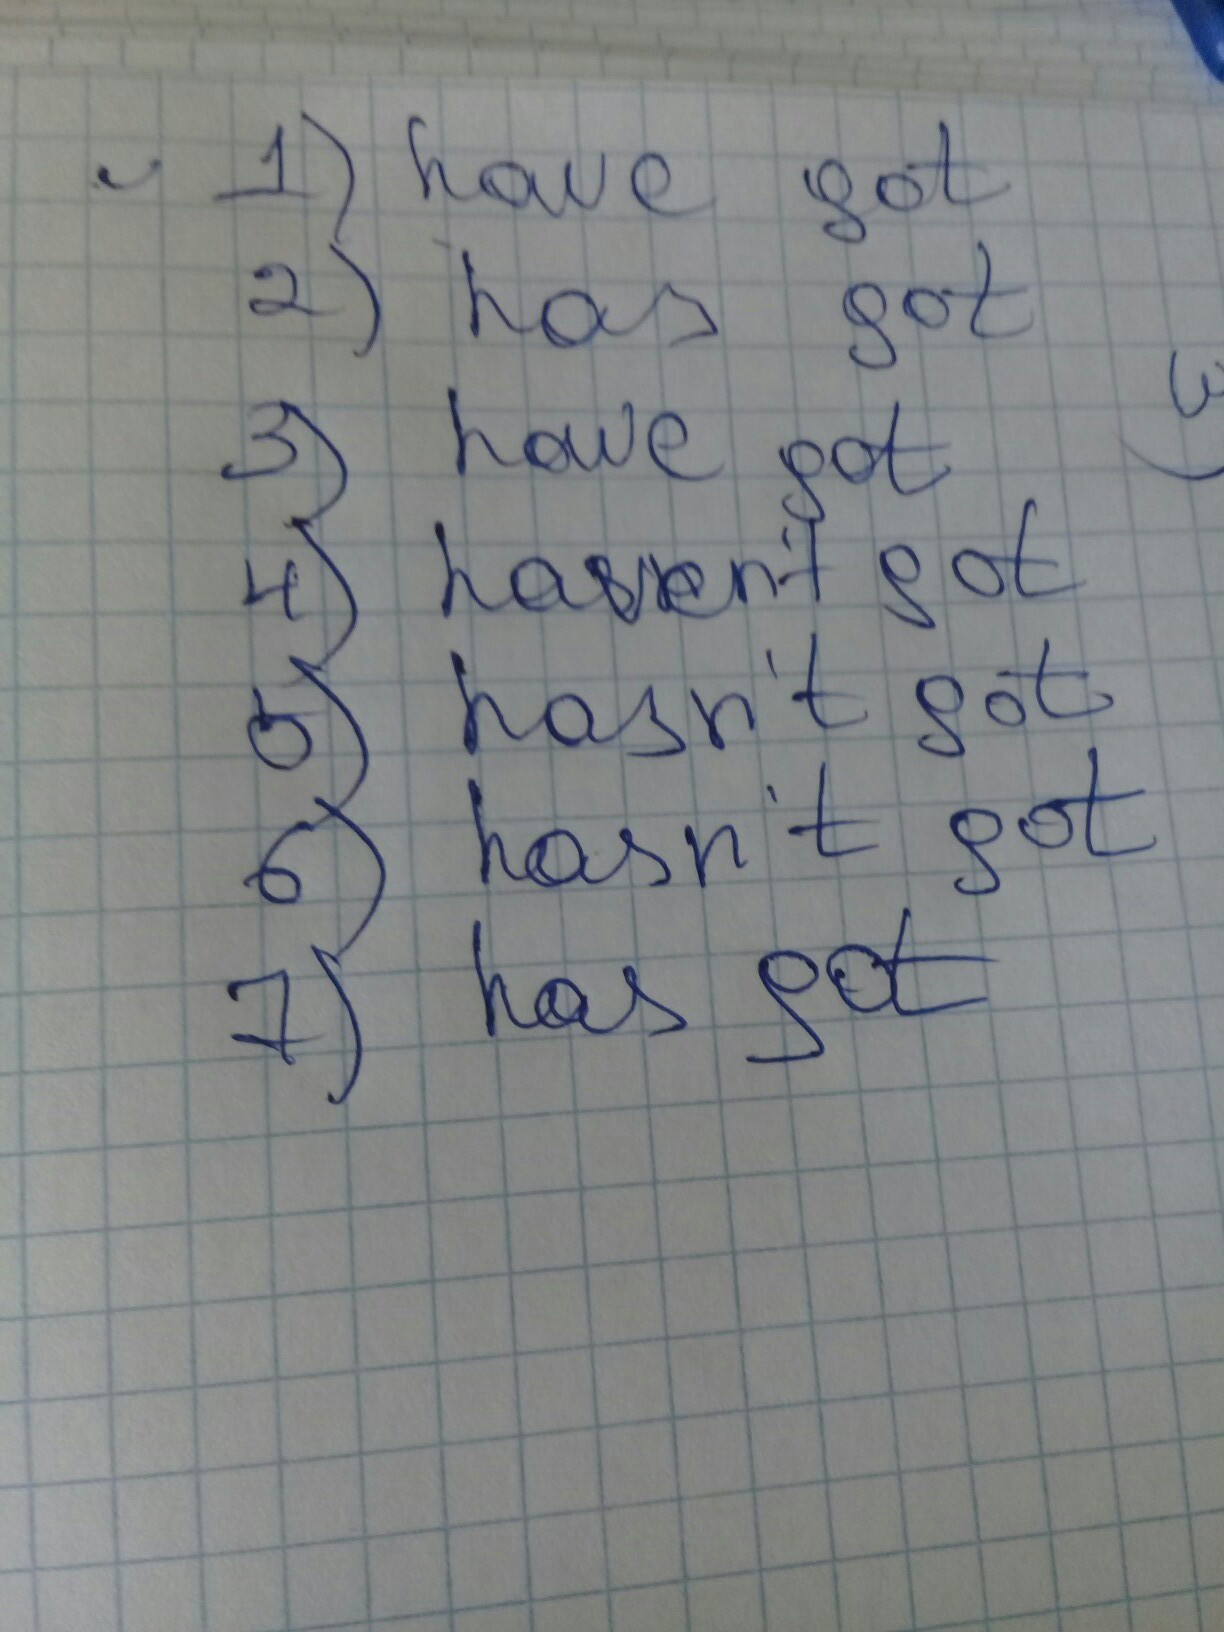 1) have got
2) has got
3) have got
4) haven't got
5) hasn't got
6) hasn't got
7) has got